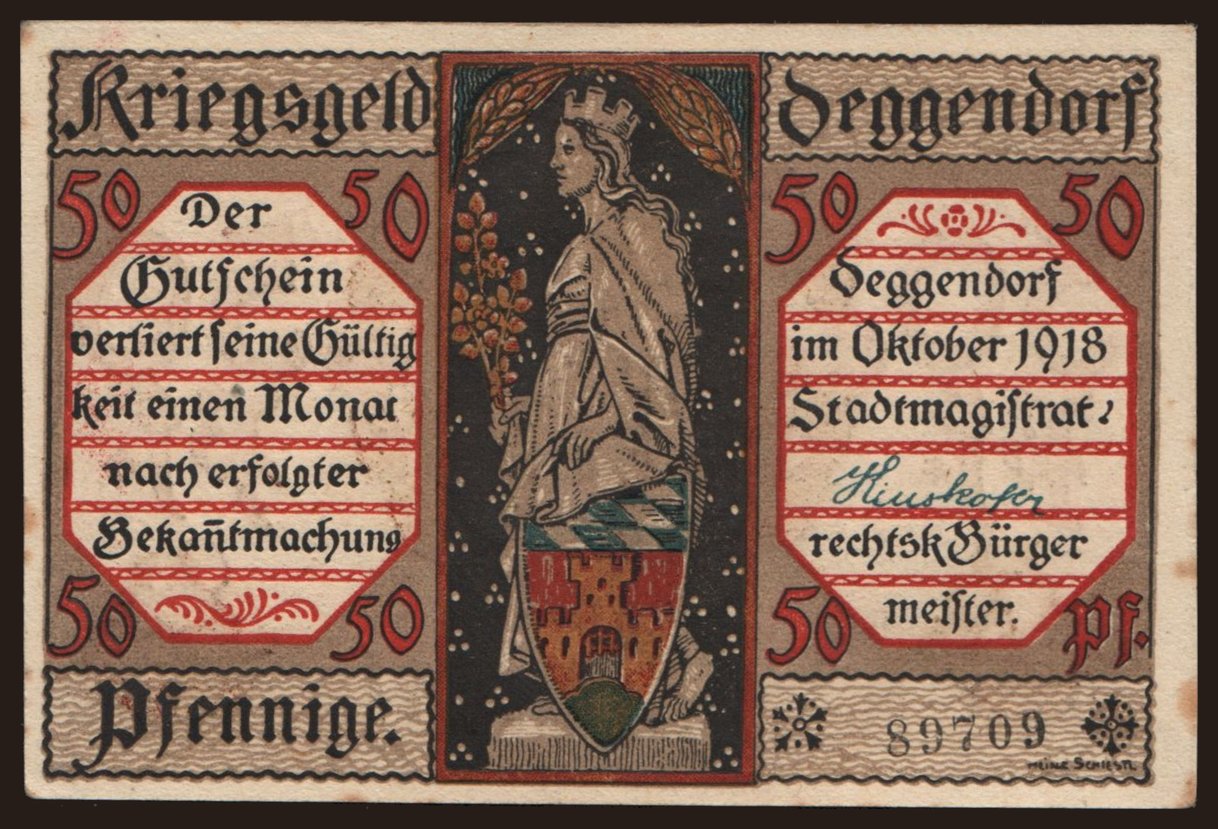 Kriegsgeld
50 50
Der
Gutschein
verliert seine Gültig
keit einen Monat
nach erfolgter
Bekan̄tmachung
50 50
Pfennige.
Deggendorf
50 50
Deggendorf
im Oktober 1918
Stadtmagistrat:
rechtsk Bürger
meister.
50 Pf.
89709
HEINZ SCHIESTL